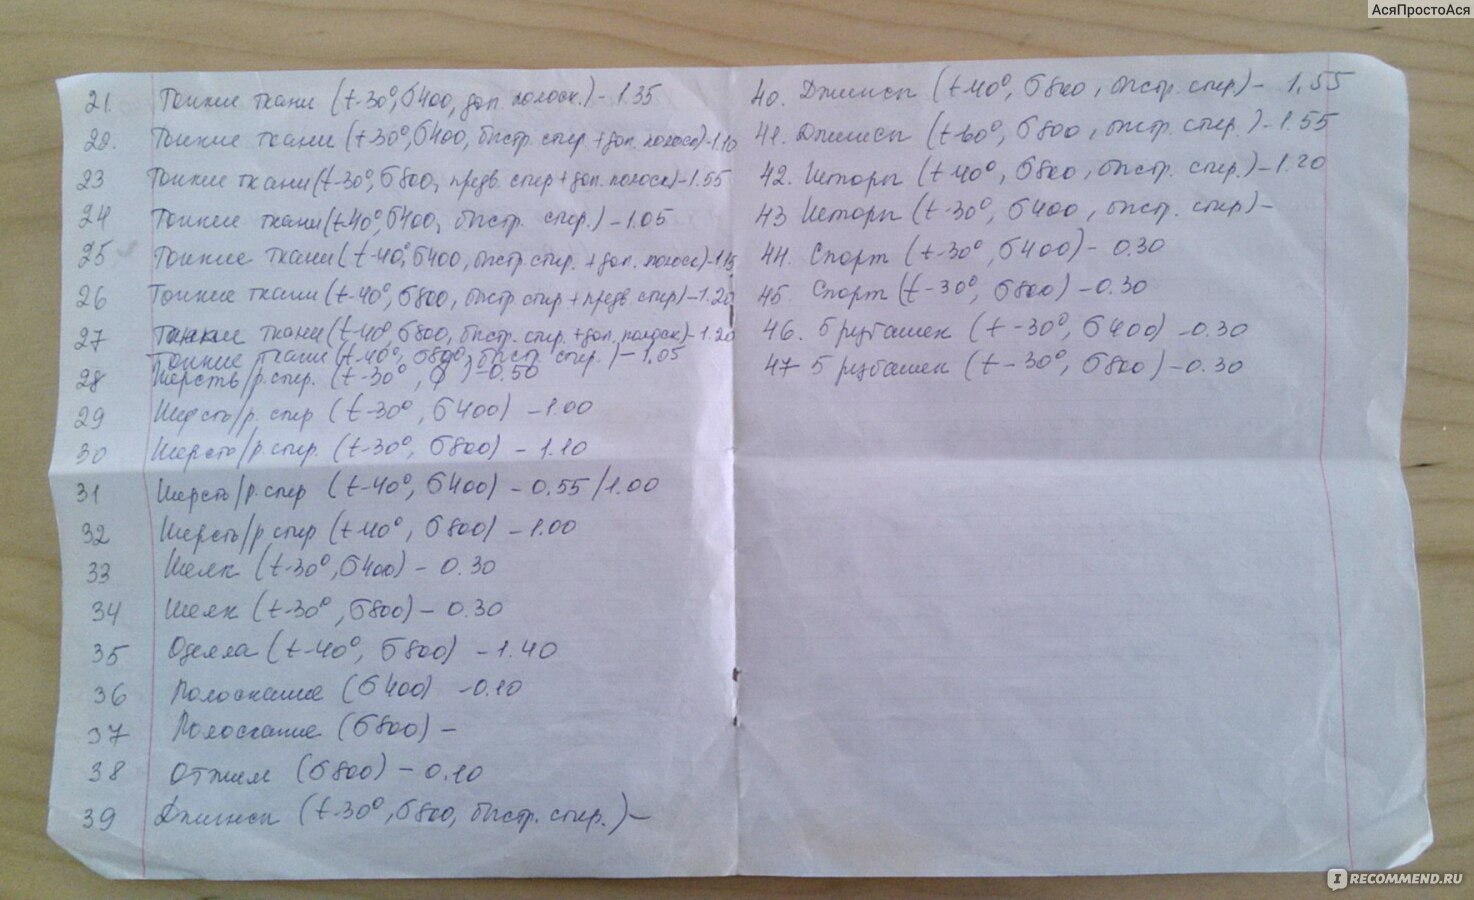 АсяПростоАся
21. Тонкие ткани (t-30°, б400, доп. полоск.) - 1.35
22. Тонкие ткани (t-30°, б400, быстр. стир. + доп. полоск) - 1.10
23 Тонкие ткани (t-30°, б800, предв. стир + доп. полоск) - 1.55
24 Тонкие ткани (t-40°, б400, быстр. стир.) - 1.05
25 Тонкие ткани (t-40°, б400, быстр. стир. + доп. полоск) - 1.15
26 Тонкие ткани (t-40°, б800, быстр стир + предв. стир) - 1.20
27 Тонкие ткани (t-40°, б800, быстр. стир. + доп. полоск) - 1.20
Тонкие ткани (t-40°, б800, быстр. стир.) - 1.05
28 Шерсть/р.стир. (t-30°, ) - 0.50
29 Шерсть/р.стир (t-30°, б400) - 1.00
30 Шерсть/р.стир. (t-30°, б800) - 1.10
31 Шерсть/р.стир (t-40°, б400) - 0.55/1.00
32 Шерсть/р.стир (t-40°, б800) - 1.00
33 Шелк (t-30°, б400) - 0.30
34 Шелк (t-30°, б800) - 0.30
35 Одеяла (t-40°, б800) - 1.40
36 Полоскание (б400) - 0.10
37 Полоскание (б800) -
38 Отжим (б800) - 0.10
39 Джинсы (t-30°, б800, быстр. стир.) -
40. Джинсы (t-40°, б800, быстр. стир) - 1,55
41. Джинсы (t-60°, б800, быстр. стир.) - 1.55
42. Шторы (t-40°, б800, быстр. стир.) - 1.20
43 Шторы (t-30°, б400, быстр. стир) -
44. Спорт (t-30°, б400) - 0.30
45. Спорт (t-30°, б800) - 0.30
46. 5 рубашек (t-30°, б400) - 0.30
47 5 рубашек (t-30°, б800) - 0.30
IRECOMMEND.RU